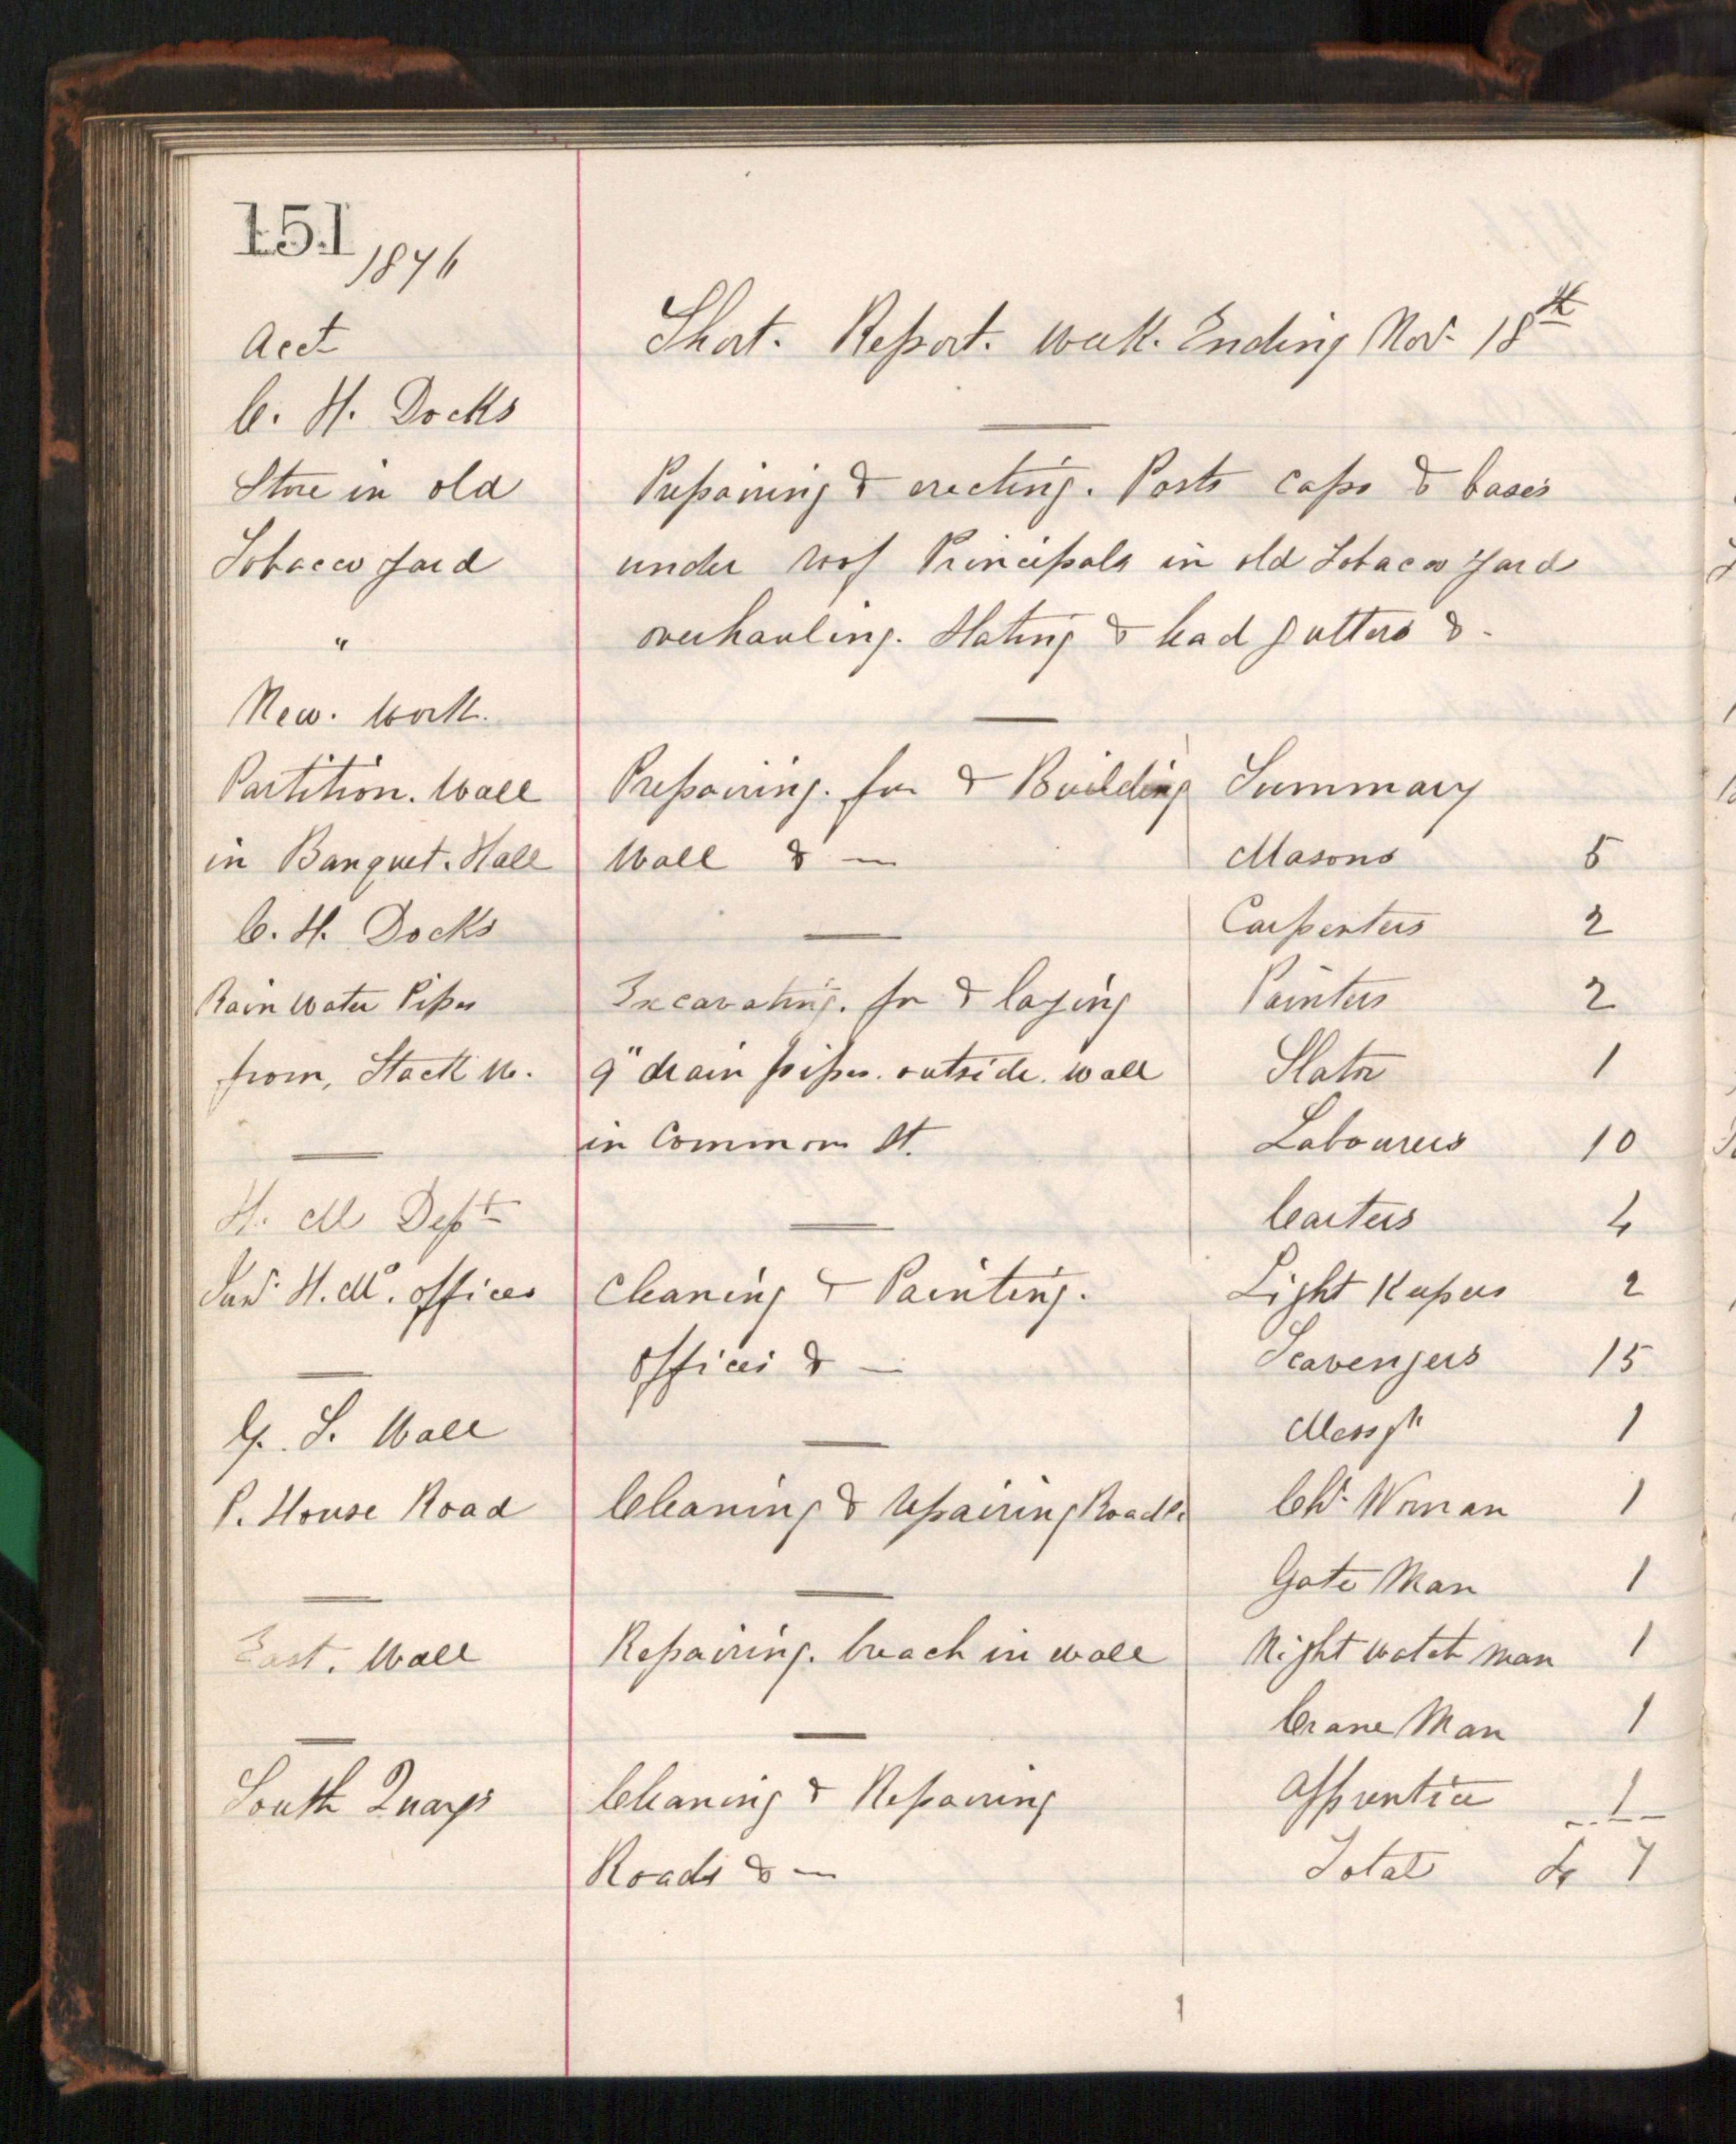 151
1876
Acct
C. H. Docks
Store in old
Tobacco Yard
"
New. Work.
Partition. Wall
in Banquet. Hall
C. H. Docks
Rain Water Pipes
from, Stack
H. M Dept
H. Mr. offices
G. S. Wall
P. House Road
East. Wall
South Quays
Short. Report. Week. Ending Nov. 18th
Preparing & erecting. Posts caps & bases
under roof Principals in old Tobacco Yard
overhauling. Slating & lead gutters &-
Preparing. for & Building
Wall & —
Excavating. for & laying
9" drain pipes. outside. wall
in Common St.
Cleaning & Painting.
offices & —
Cleaning & repairing Roads.
Repairing. breach in wall
Cleaning & Repairing
Roads & —
Summary
Masons 5
Carpenters 2
Painters 2
Slater 1
Labourers 10
Carters 4
Light Keepers 2
Scavengers 15
Messgr 1
Chr. Woman 1
Gate Man 1
Night Watch man 1
Crane Man 1
Apprentice 1
Total 47